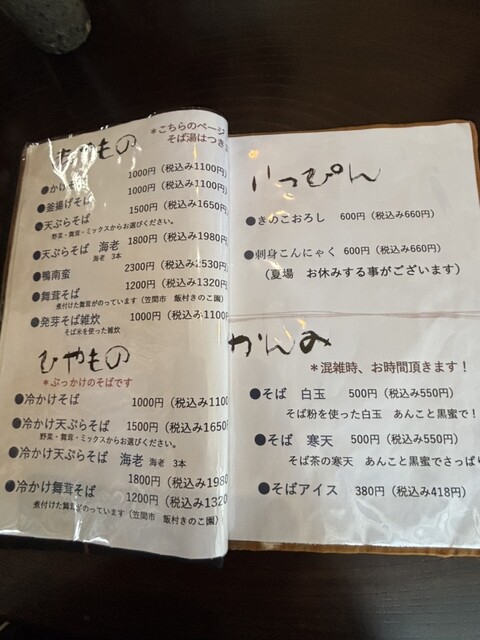 もの
＊こちらのページ
そば湯はつき
●かけそば 1000円（税込み1100円）
●釜揚げそば 1000円（税込み1100円）
●天ぷらそば 1500円（税込み1650円
野菜・舞茸・ミックスからお選びください。
●天ぷらそば 海老 1800円（税込み1980円
海老 3本
●鴨南蛮 2300円（税込み2530円）
●舞茸そば 1200円（税込み1320円
煮付けた舞茸がのっています（笠間市 飯村きのこ園）
●発芽そば雑炊 1000円（税込み1100円
そば米を使った雑炊
ひやもの
＊ぶっかけのそばです
●冷かけそば 1000円（税込み1100
●冷かけ天ぷらそば 1500円（税込み1650
野菜・舞茸・ミックスからお選びください。
●冷かけ天ぷらそば 海老 海老 3本
1800円（税込み1980
●冷かけ舞茸そば 1200円（税込み1320
煮付けた舞茸がのっています（笠間市 飯村きのこ園）
いっぴん
●きのこおろし 600円（税込み660円）
●刺身こんにゃく 600円（税込み660円）
（夏場 お休みする事がございます）
かんみ
＊混雑時、お時間頂きます！
●そば 白玉 500円（税込み550円）
そば粉を使った白玉 あんこと黒蜜で！
●そば 寒天 500円（税込み550円）
そば茶の寒天 あんこと黒蜜でさっぱり
●そばアイス 380円（税込み418円）